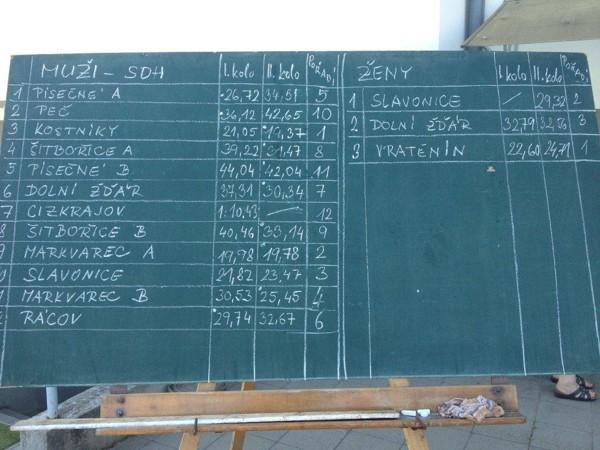 MUŽI - SDH I. kolo II. kolo POŘADÍ
1 PÍSEČNÉ A 26,72 34,51 5
2 PEČ 36,12 42,65 10
3 KOSTNÍKY 21,05 19,37 1
4 ŠITBOŘICE A 39,22 31,47 8
5 PÍSEČNÉ B 44,04 42,04 11
6 DOLNÍ ŽĎÁR 37,31 30,34 7
7 CIZKRAJOV 1:10,43 — 12
8 ŠITBOŘICE B 40,46 33,14 9
9 MARKVAREC A 19,98 19,78 2
SLAVONICE 21,82 23,47 3
MARKVAREC B 30,53 25,45 4
RÁCOV 29,74 32,67 6
ŽENY I. kolo II. kolo POŘADÍ
1 SLAVONICE / 29,32 2
2 DOLNÍ ŽĎÁR 32,79 32,56 3
3 VRATĚNÍN 22,60 24,71 1